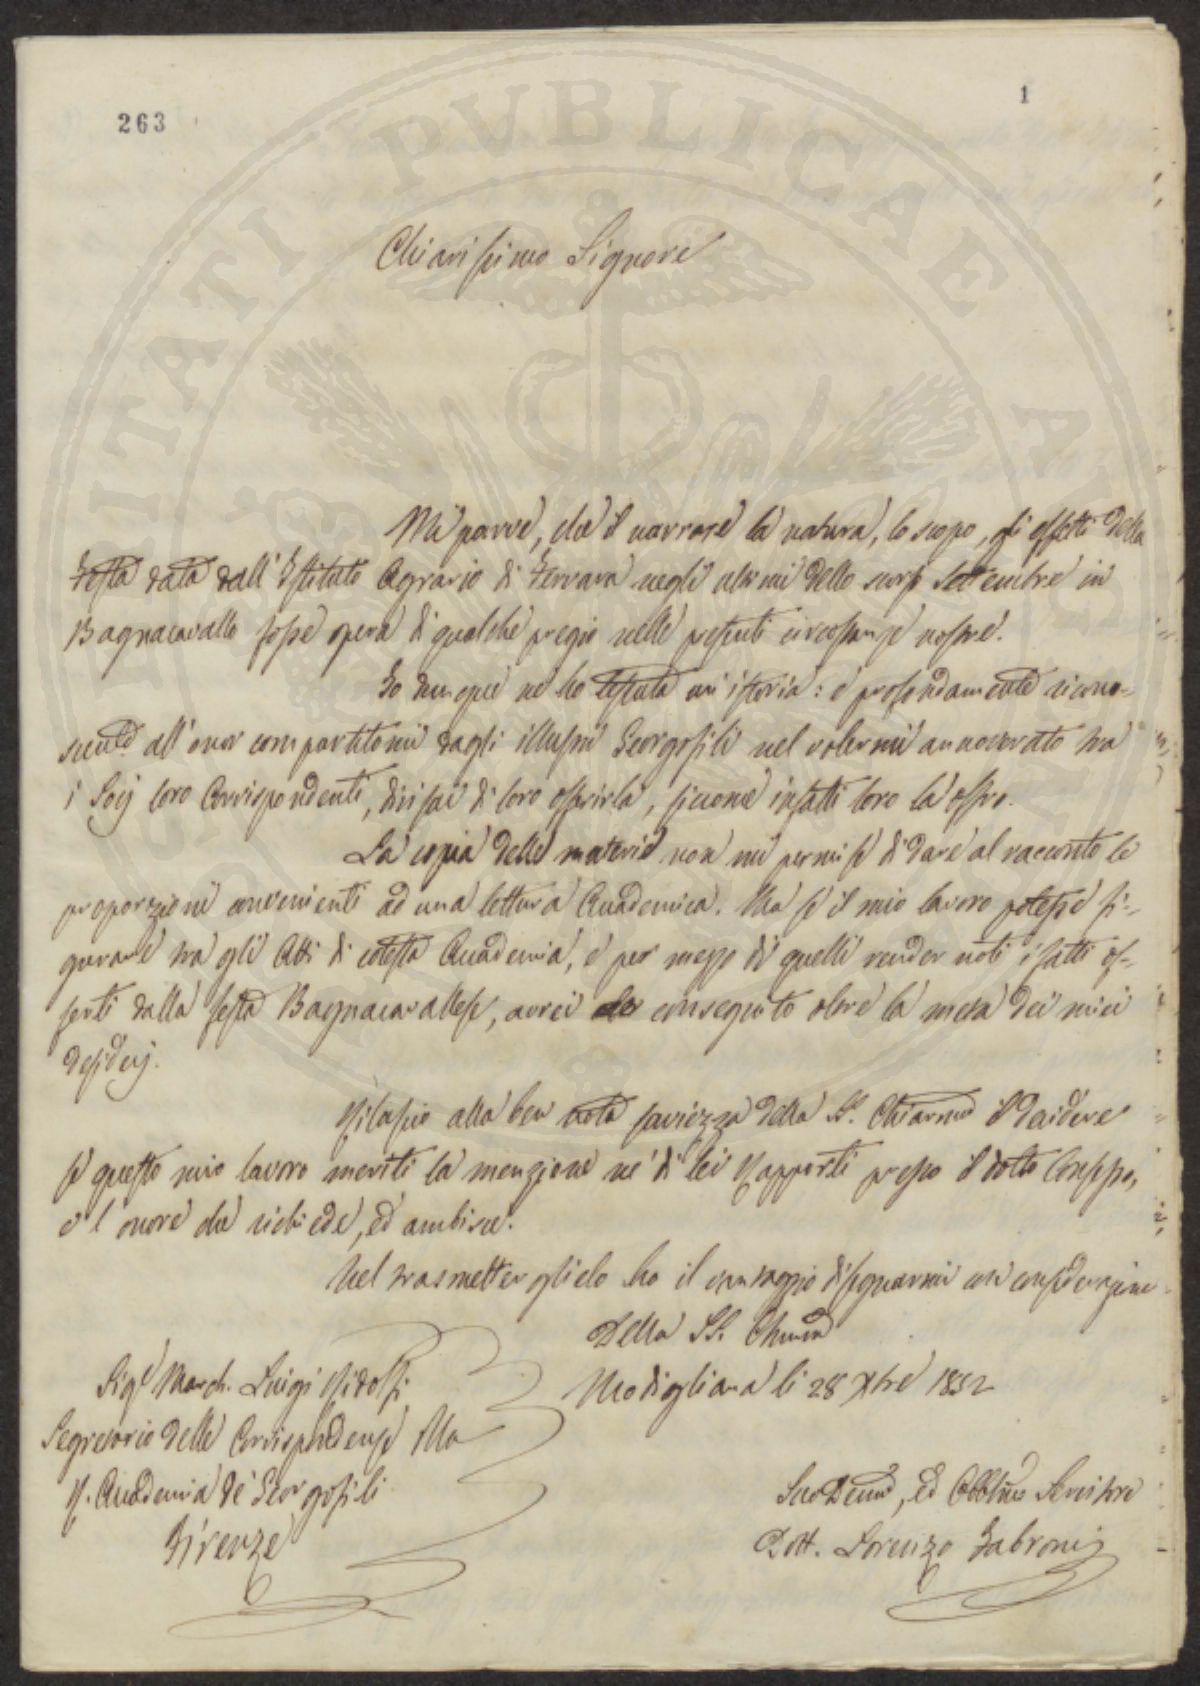 263
1
PVBLICAE
Chiarissimo Signore
Mi parve, che il narrare la natura, lo scopo, gli effetti della
festa data dall'Istituto Agrario di Ferrara negli ultimi dello scorso Settembre in
Bagnacavallo fosse opera di qualche pregio nelle presenti circostanze nostre.
Io dunque ne ho tessuta un'istoria: e profondamente ricono-
scente all'onor compartitomi dagli illustri Georgofili nel volermi annoverato tra
i Socj loro Corrispondenti, divisai di loro offrirla, siccome infatti loro la offro.
La copia delle materie non mi permise di dare al racconto le
proporzioni convenienti ad una lettura Accademica. Ma se il mio lavoro potesse fi-
gurare tra gli Atti di cotesta Accademia, e per mezzo di quelli render noti i fatti of-
ferti dalla festa Bagnacavallese, avrei conseguito oltre la meta dei miei
desiderj.
Rilascio alla ben nota saviezza della S. Chiarma il decidere
se questo mio lavoro meriti la menzione ne di lei Rapporti presso il dotto Consesso,
e l'onore che richiede, ed ambisce.
Nel trasmetterglielo ho il vantaggio di segnarmi con considerazione
Della S. Chiarma
Sigr March. Luigi Ridolfi
Modigliana li 28 Xbre 1852
Segretario delle Corrispondenze della
R. Accademia de' Georgofili
Firenze
Suo Devmo, ed Obblmo Servitore
Dott. Lorenzo Fabroni